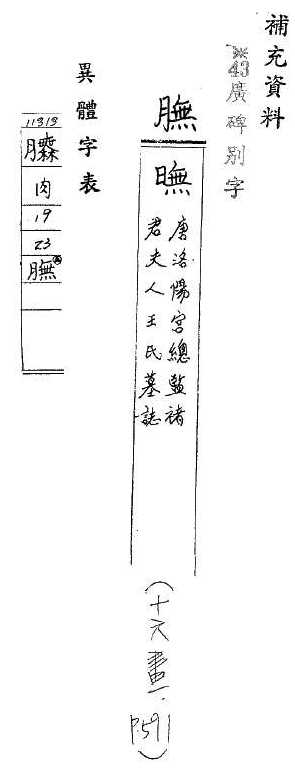 補充資料
※43廣碑別字
膴
𣋠
唐洛陽宮總監褚
君夫人王氏墓誌
(十六畫、P.591)
異體字表
11313
肉
19
23
膴